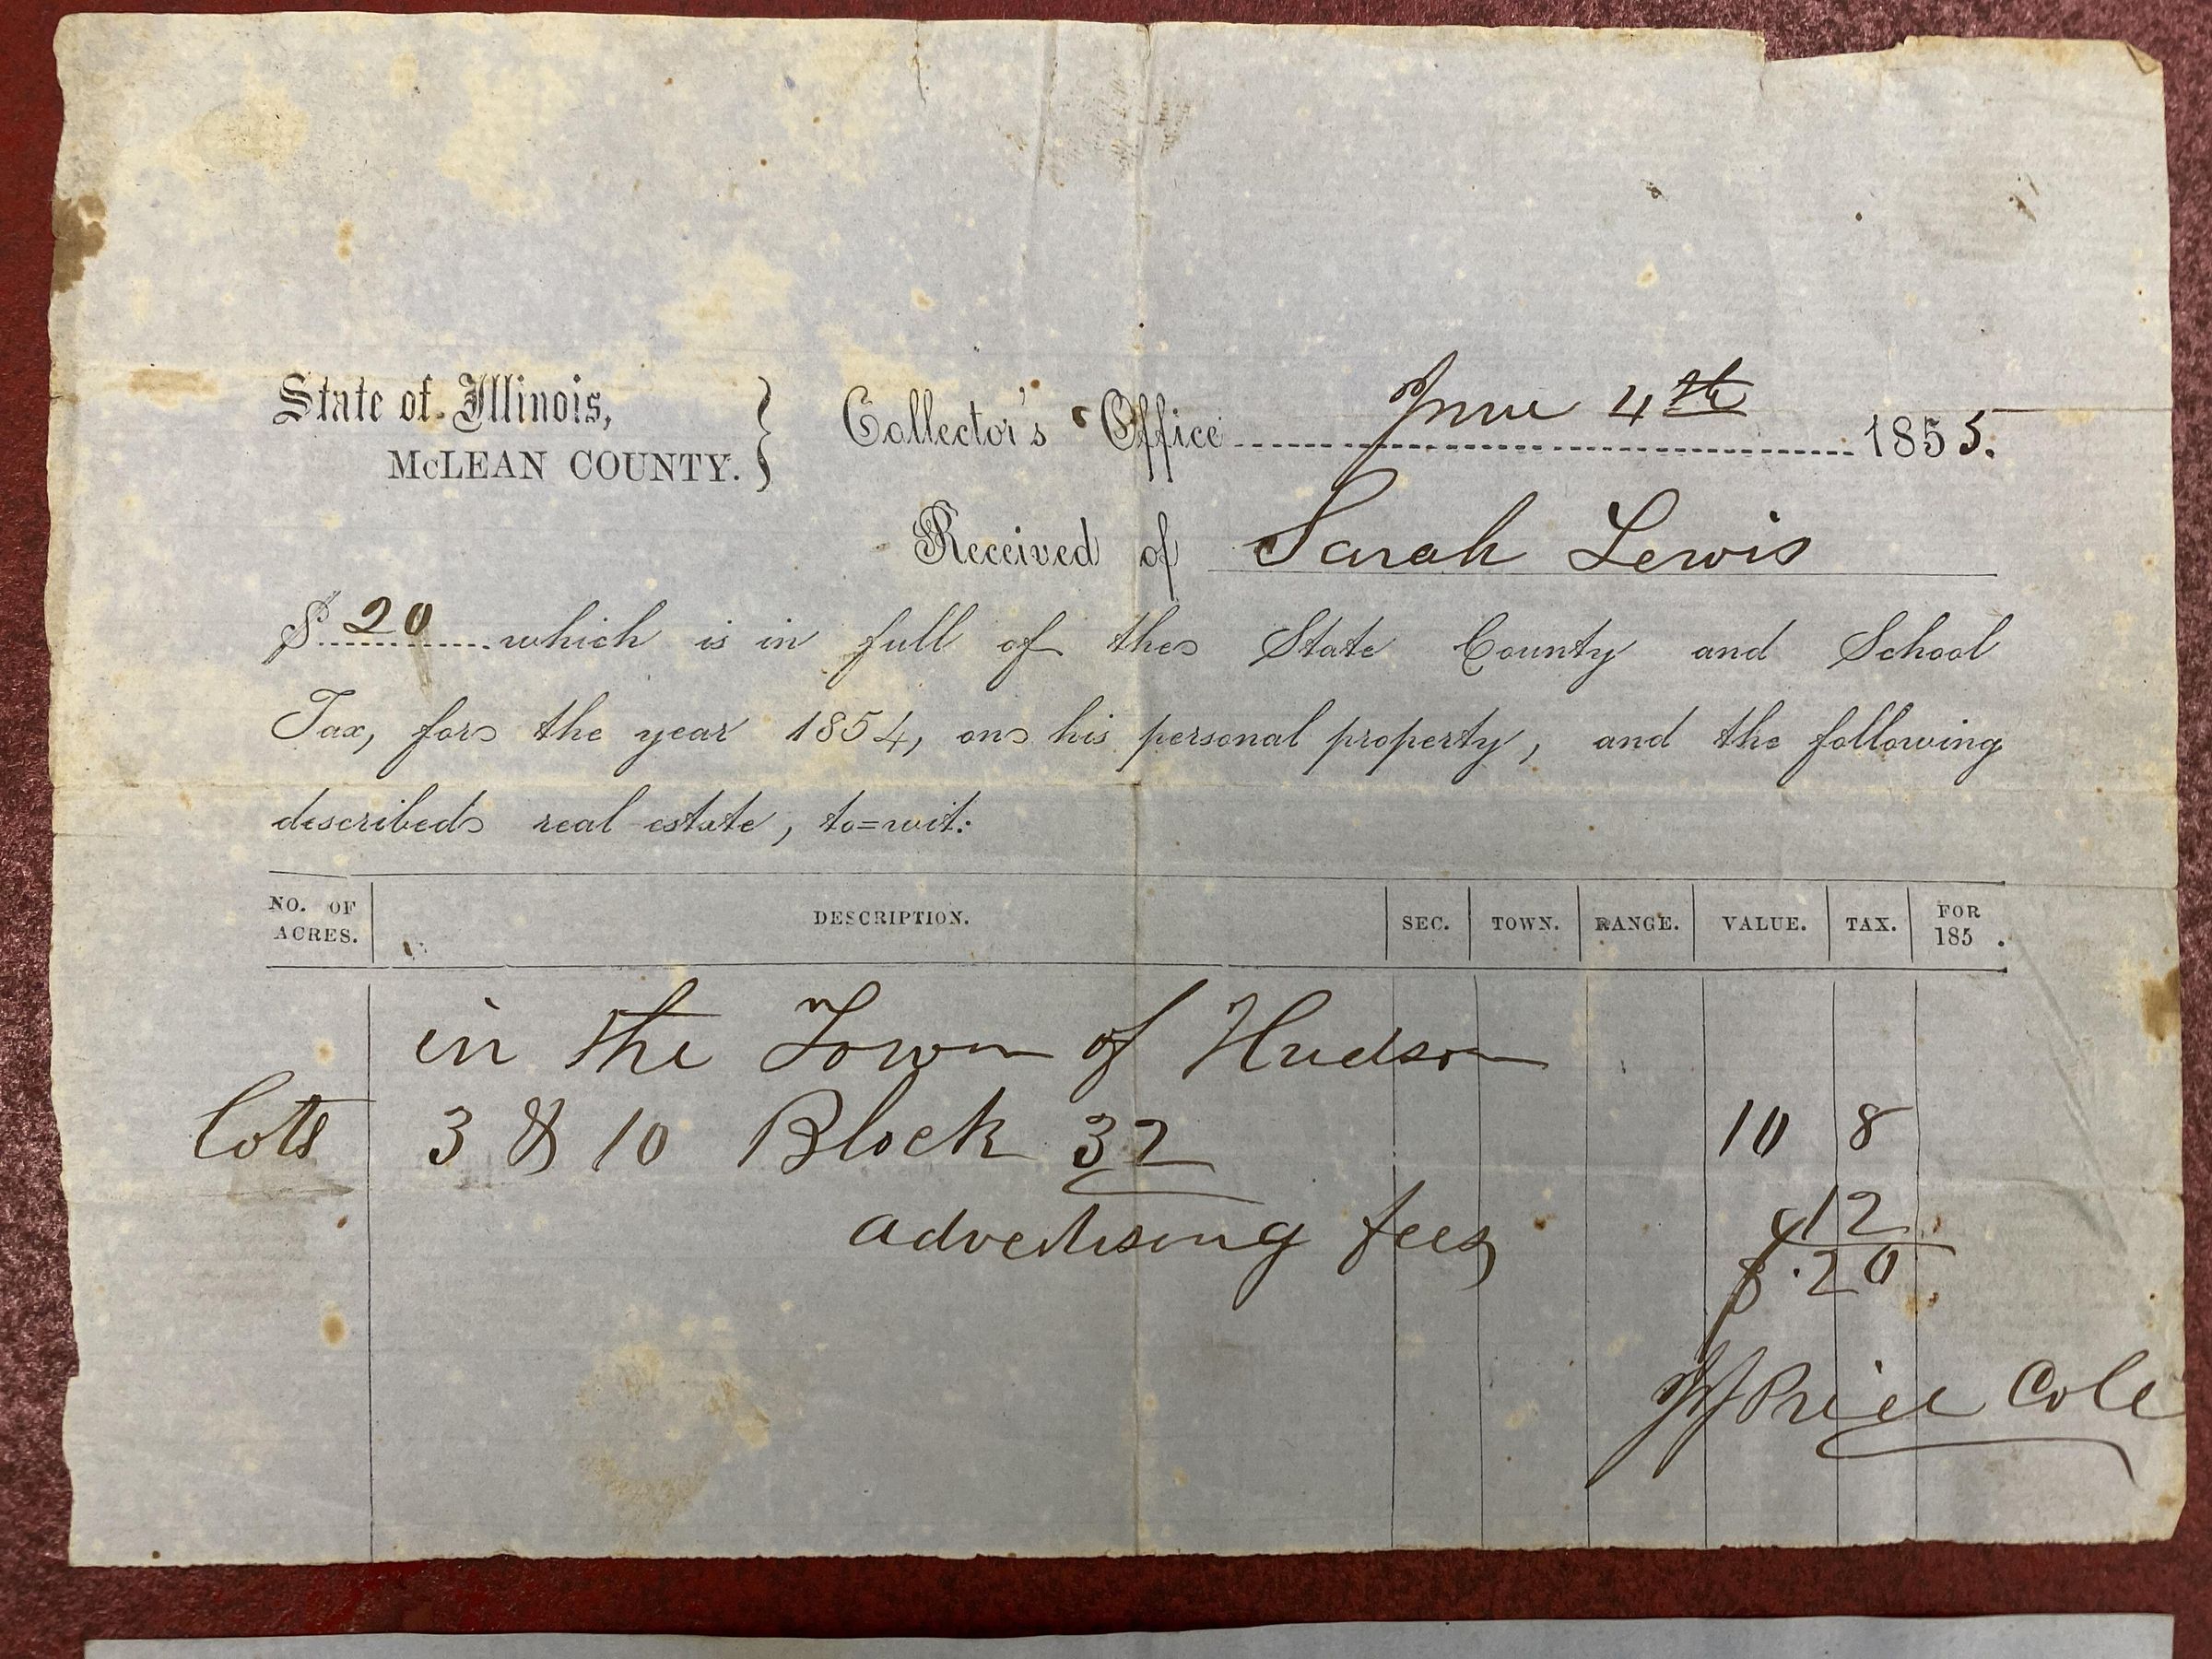 State of Illinois,
McLEAN COUNTY.
Collector's Office June 4th 1855.
Received of Sarah Lewis
$ 20 which is in full of the State County and School
Tax, for the year 1854, on his personal property, and the following
described real estate, to=wit:
NO. OF ACRES. DESCRIPTION. SEC. TOWN. RANGE. VALUE. TAX. FOR 185 .
in the Town of Hudson
Lots 3 & 10 Block 32 10 8
advertising fees 12
$ .20
Price Cole